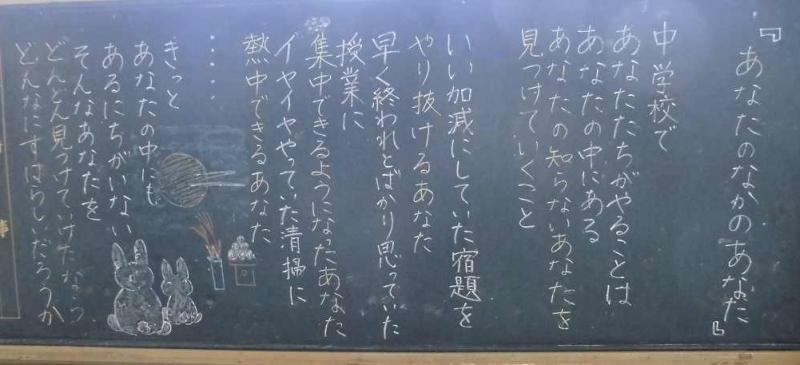 『あなたのなかのあなた』
中学校で
あなたたちがやることは
あなたの中にある
あなたの知らないあなたを
見つけていくこと
いい加減にしていた宿題を
やり抜けるあなた
早く終われとばかり思っていた
授業に
集中できるようになったあなた
イヤイヤやっていた清掃に
熱中できるあなた
・・・・
きっと
あなたの中にも
あるにちがいない
そんなあなたを
どんどん見つけていけたなら
どんなにすばらしいだろうか